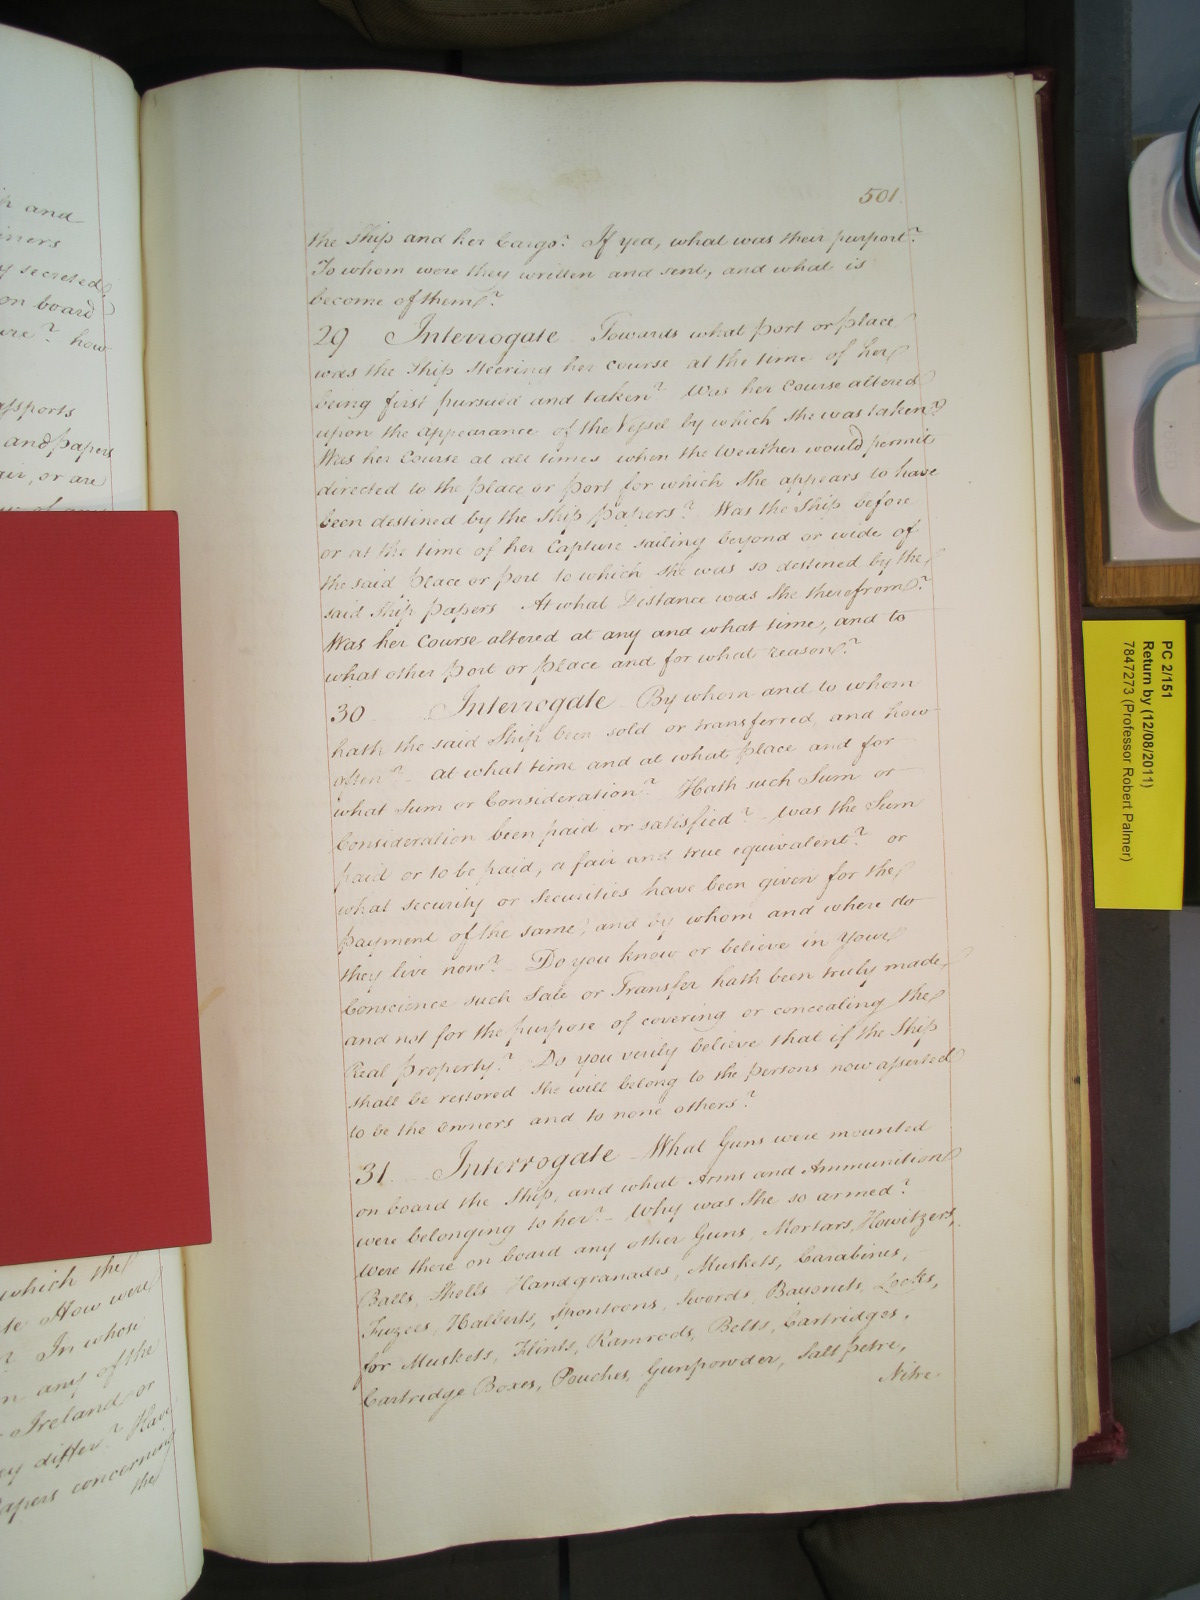 h and
iners
y secreted
on board
ure? how
assports
and papers
air, or are
which the
te How were
? In whose
n any of the
Ireland or
ey differ? Have
apers concerning
the
501.
the Ship and her Cargo? If yea, what was their purport?
To whom were they written and sent, and what is
become of them?
29 Interrogate Towards what port or place
was the Ship steering her course at the time of her
being first pursued and taken? Was her Course altered
upon the appearance of the Vessel by which She was taken?
Was her Course at all times when the Weather would permit
directed to the place or port for which She appears to have
been destined by the Ship papers? Was the Ship before
or at the time of her Capture sailing beyond or wide of
the said place or port to which She was so destined by the
said Ship papers At what Distance was She therefrom?
Was her Course altered at any and what time, and to
what other port or place and for what reason?
30 Interrogate By whom and to whom
hath the said Ship been sold or transferred, and how
often? at what time and at what place and for
what Sum or Consideration? Hath such Sum or
Consideration been paid or satisfied? Was the Sum
paid or to be paid, a fair and true equivalent? or
what security or Securities have been given for the
payment of the same, and by whom and where do
they live now? Do you know or believe in Your
Conscience such Sale or Transfer hath been truly made,
and not for the purpose of covering or concealing the
Real property? Do you verily believe that if the Ship
shall be restored She will belong to the persons now asserted
to be the Owners and to none others?
31. Interrogate What Guns were mounted
on board the Ship, and what Arms and Ammunition
were belonging to her? Why was She so armed?
Were there on board any other Guns, Mortars, Howitzers,
Balls, Shells Handgranades, Muskets, Carabines,
Fuzees, Halberts, Spontoons, Swords, Bayonets, Locks,
for Muskets, Flints, Ramrods, Belts, Cartridges,
Cartridge Boxes, Pouches, Gunpowder, Salt petre,
Nitre.
PC 2/151
Return by (12/08/2011)
7847273 (Professor Robert Palmer)